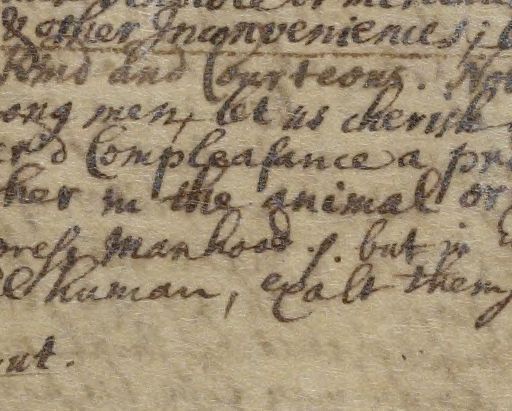 & other Inconveniencies;
kind and Courteous. No
ong men, let us cherish
Compleasance a pr
her in the animal or
press Manhood. but in
human, exalt them
ut.